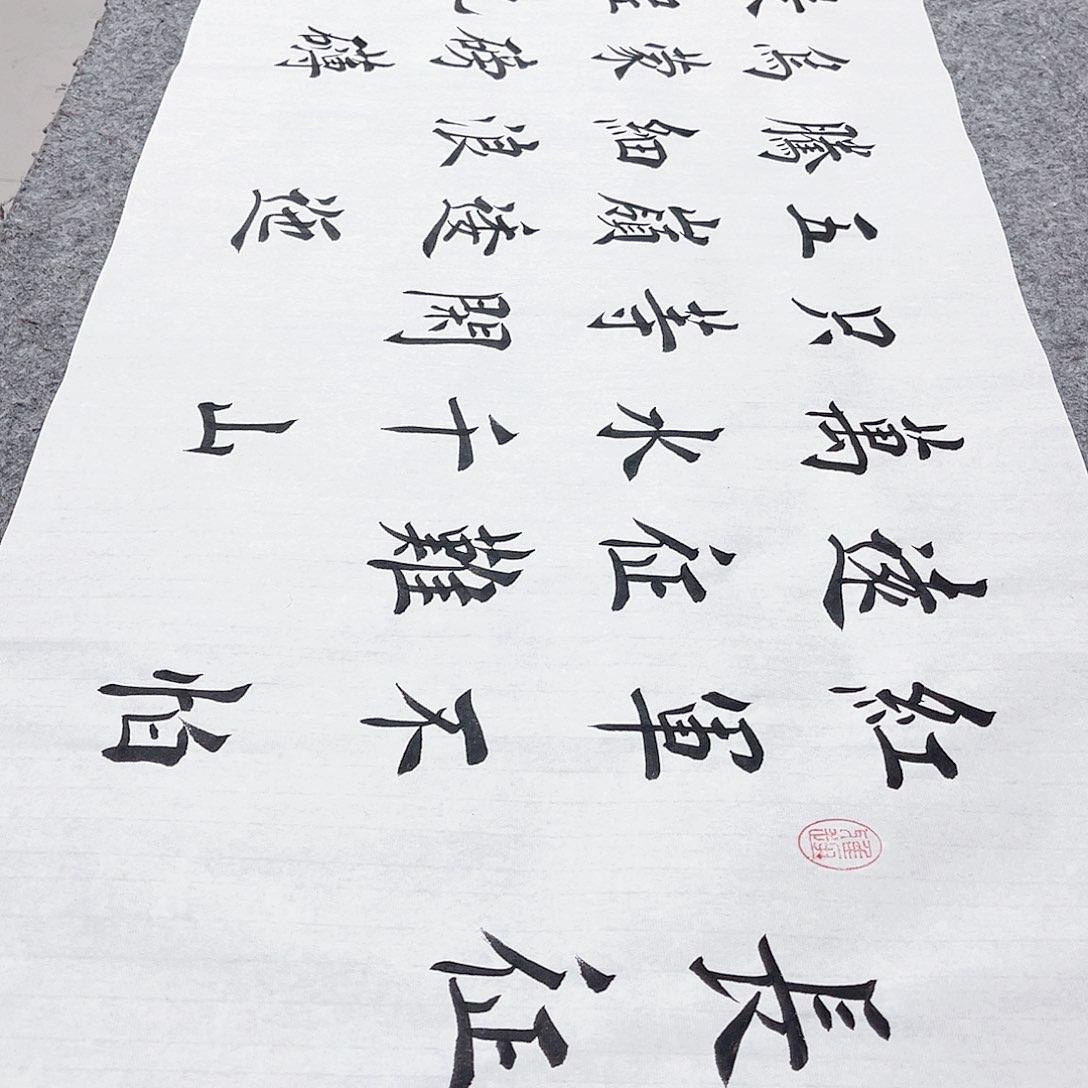 長征
紅軍不怕
遠征難
萬水千山
只等閑
五嶺逶迤
騰細浪
烏蒙磅礴